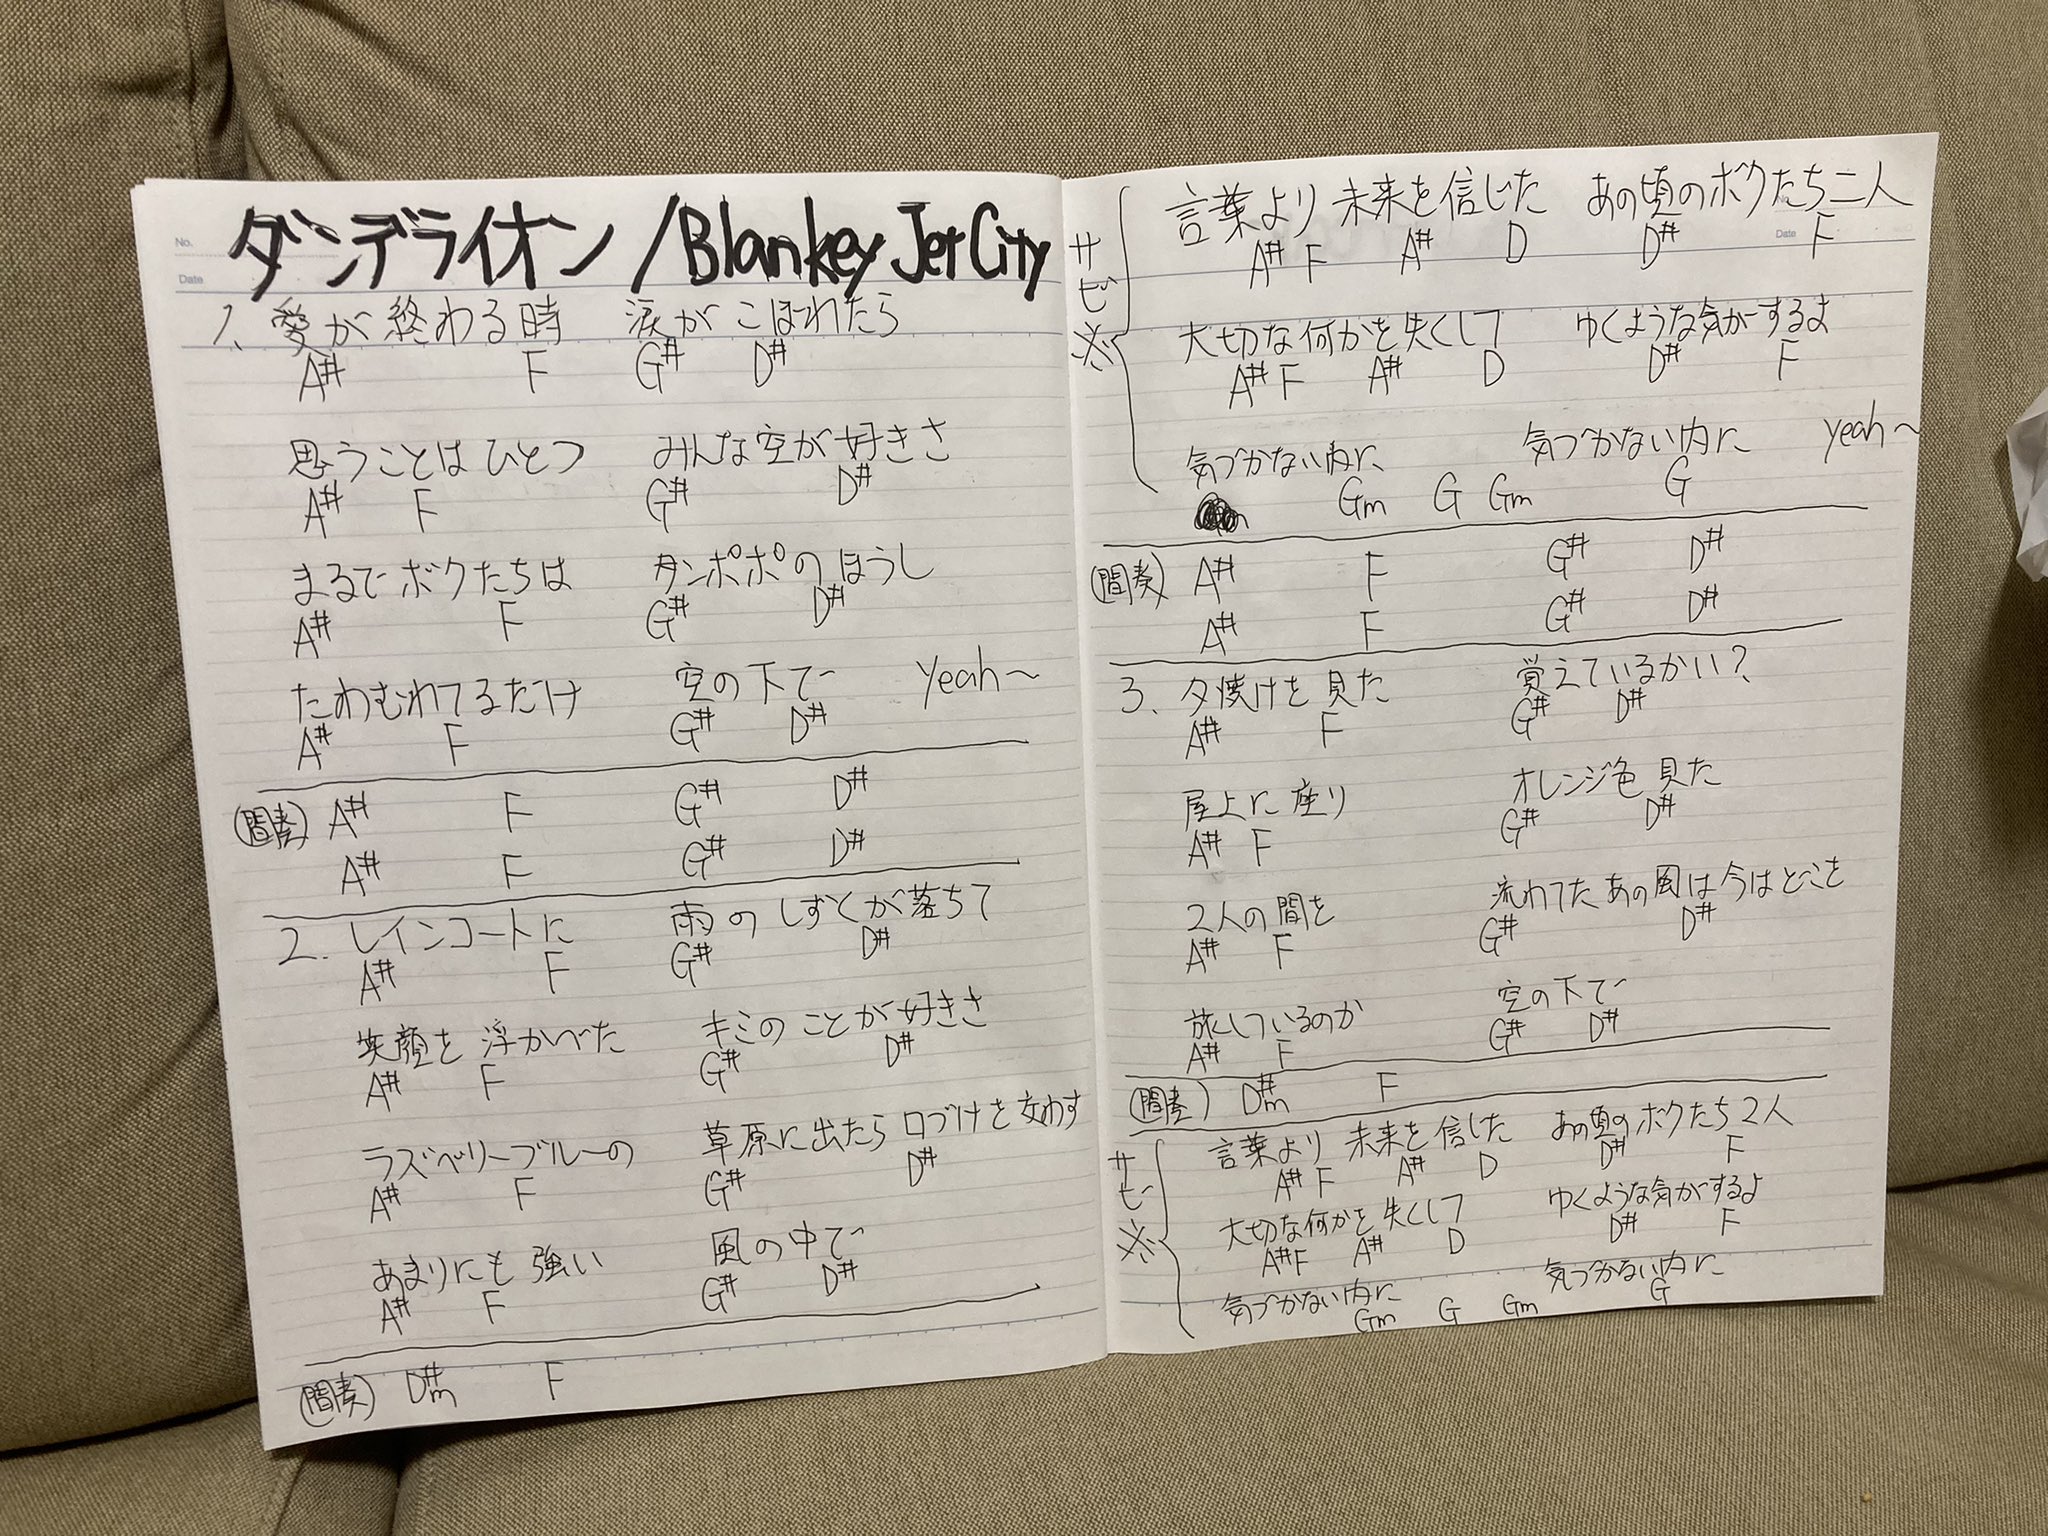 No.
Date
ダンデライオン / Blankey Jet City
1、愛が終わる時 涙がこぼれたら
A# F G# D#
思うことはひとつ みんな空が好きさ
A# F G# D#
まるでボクたちは タンポポのほうし
A# F G# D#
たわむれてるだけ 空の下で yeah～
A# F G# D#
(間奏) A# F G# D#
A# F G# D#
2. レインコートに 雨のしずくが落ちて
A# F G# D#
笑顔を浮かべた キミのことが好きさ
A# F G# D#
ラズベリーブルーの 草原に出たら口づけを交わす
A# F G# D#
あまりにも強い 風の中で
A# F G# D#
(間奏) D#m F
サビ※
言葉より未来を信じた あの頃のボクたち二人
A# F A# D D# F
Date
大切な何かを失くして ゆくような気がするよ
A# F A# D D# F
気づかない内に 気づかない内に yeah～
Gm G Gm G
(間奏) A# F G# D#
A# F G# D#
3、夕焼けを見た 覚えているかい？
A# F G# D#
屋上に座り オレンジ色見た
A# F G# D#
2人の間を 流れてたあの風は今はどこを
A# F G# D#
旅しているのか 空の下で
A# F G# D#
(間奏) D#m F
サビ※
言葉より未来を信じた あの頃のボクたち2人
A# F A# D D# F
大切な何かを失くして ゆくような気がするよ
A# F A# D D# F
気づかない内に 気づかない内に
Gm G Gm G